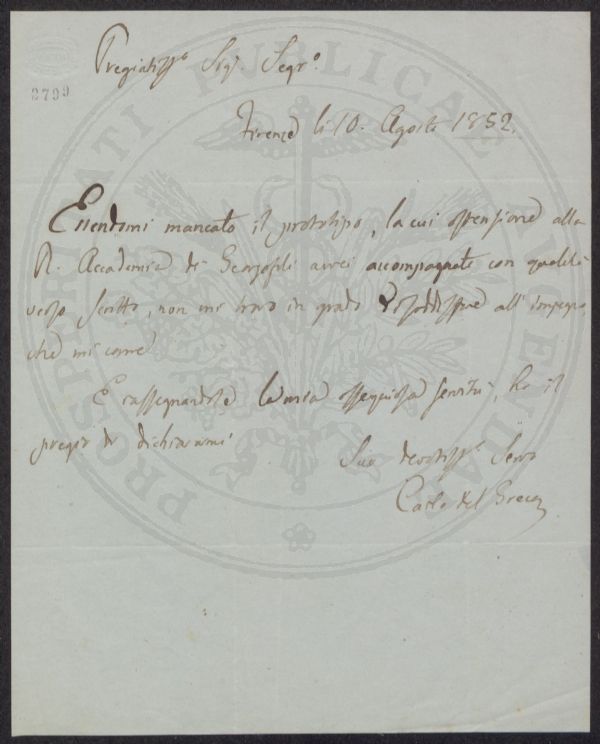 2799
Pregiatiss.º Sig.r Segr.º
Firenze li 10. Agosto 1852.
Essendomi mancato il prototipo, la cui ostensione alla
R. Accademia de' Georgofili avrei accompagnata con qualche
verso scritto, non mi trovo in grado di soddisfare all' impegno
che mi corre
E rassegnandole la mia ossequiosa servitù, ho il
pregio di dichiararmi
Suo devotiss.º Servo
Carlo del Greco
PROSPERITATI PUBLICAE AUGENDAE